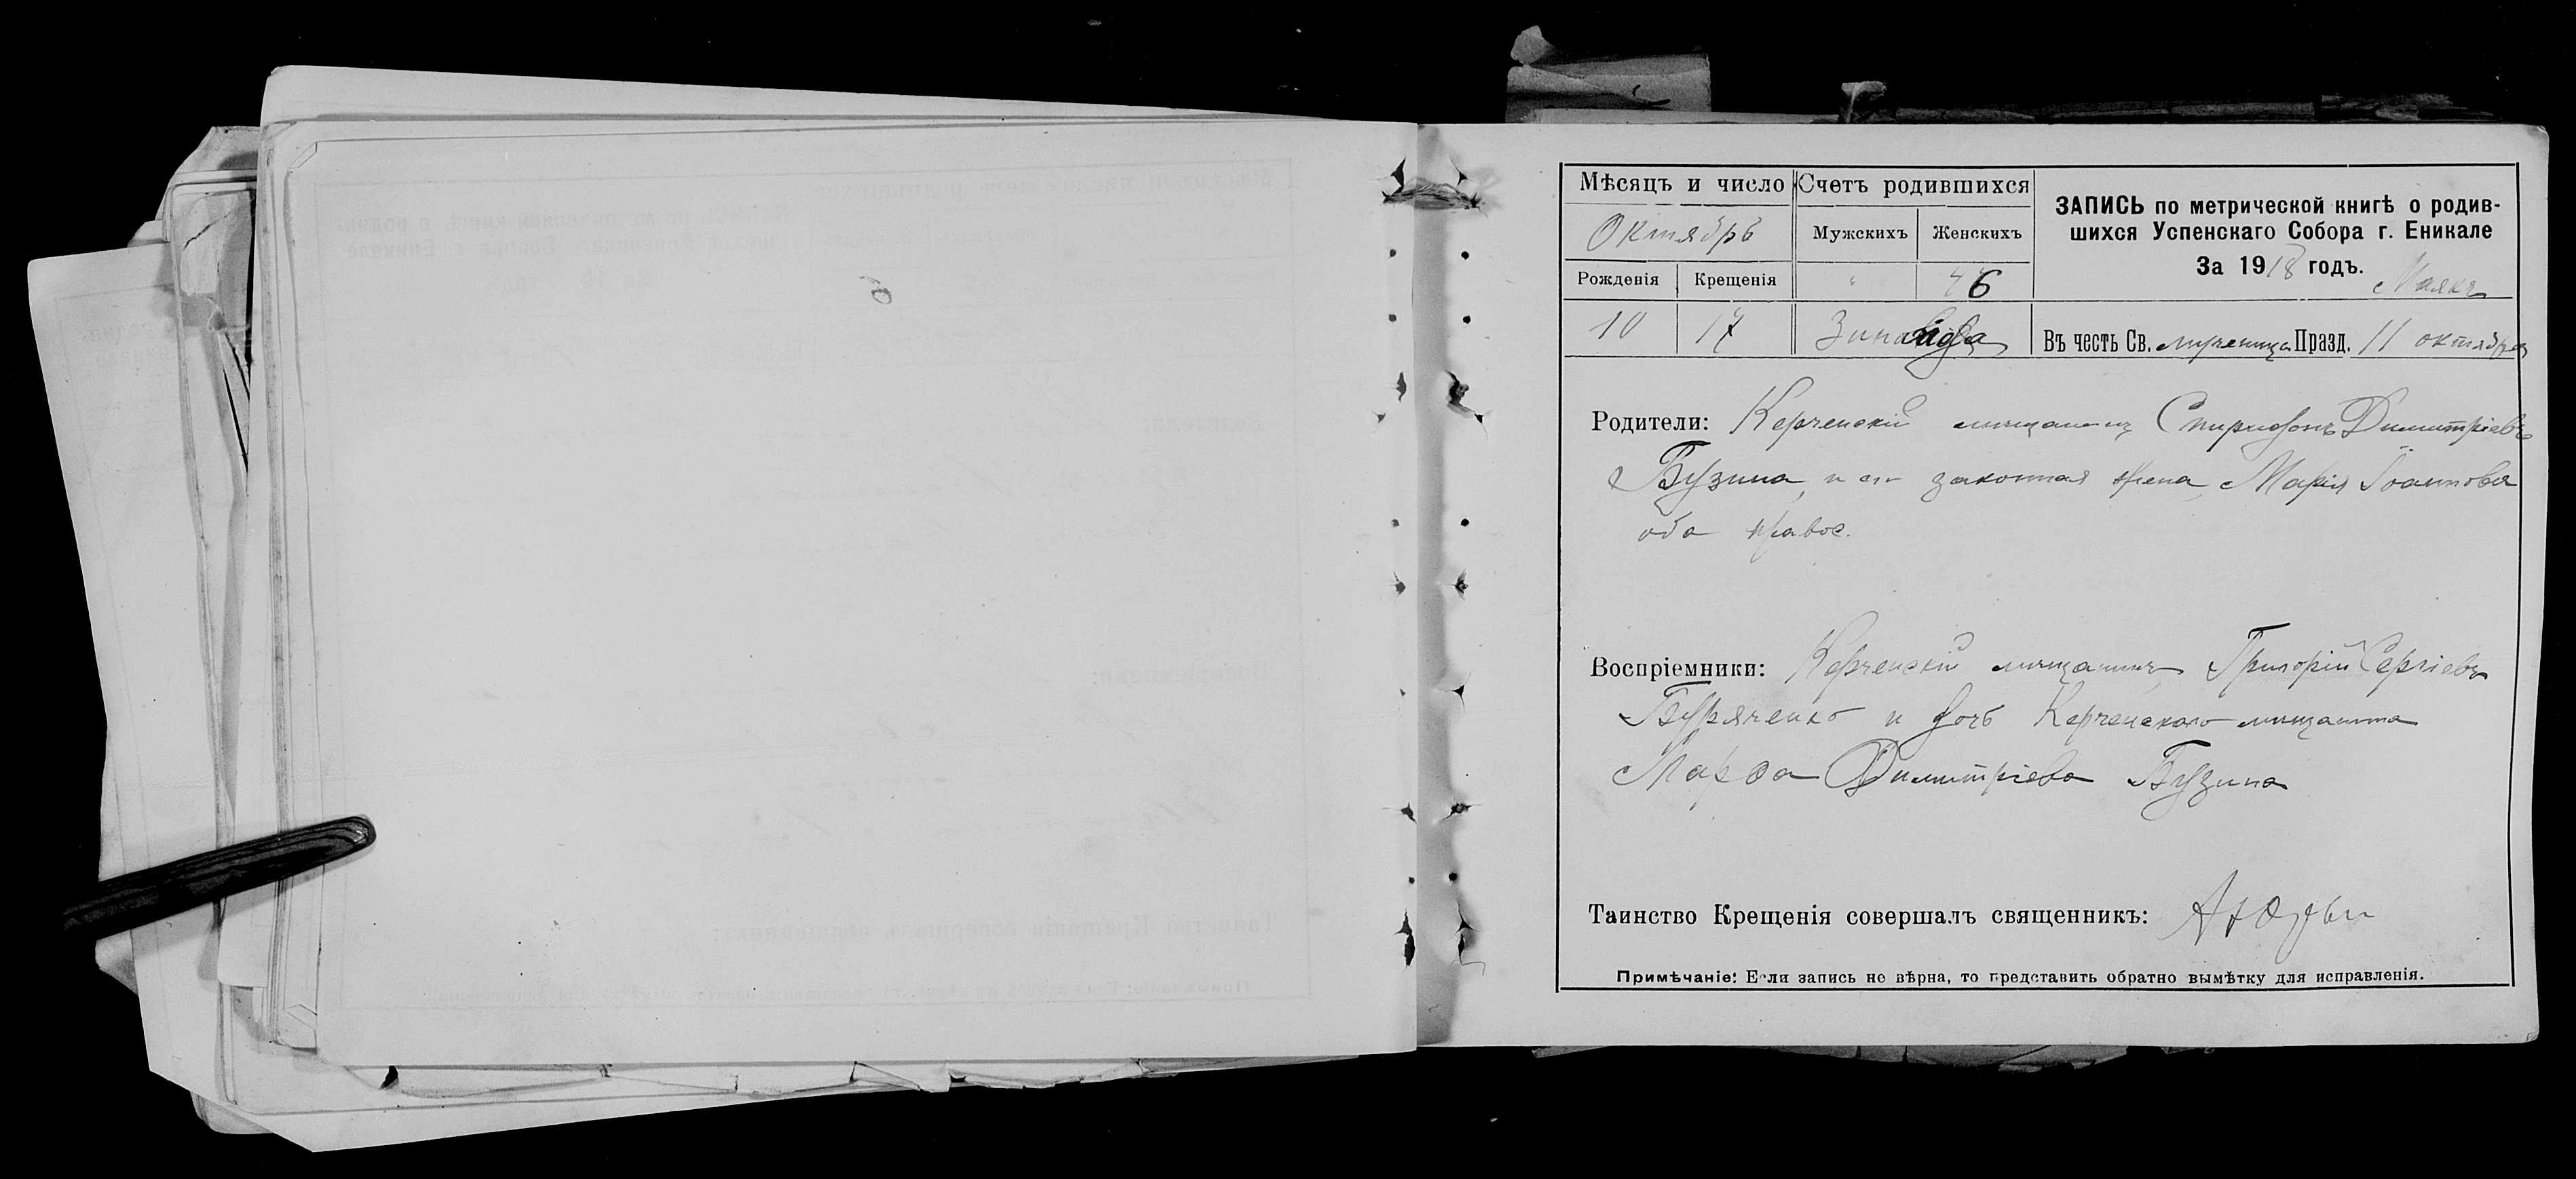 Мѣсяцъ и число
Октябрь
Рожденія
Крещенія
10
17
Счетъ родившихся
Мужскихъ
Женскихъ
"
46
Зинаида
ЗАПИСЬ по метрической книгѣ о родив-
шихся Успенскаго Собора г. Еникале
За 1918 годъ.
Маякъ
Въ честь Св. мученица Празд. 11 октября
Родители: Керченскій мещанинъ Спиридонъ Димитріевъ
Бузина, и его законная жена, Марія Іоаннова
оба правос.
Воспріемники: Керченскій мещанинъ Григорій Сергіевъ
Буряченко и дочь Керченскаго мещанина
Марѳа Димитріева Бузина
Таинство Крещенія совершалъ священникъ:
Примѣчаніе: Если запись не вѣрна, то представить обратно вымѣтку для исправленія.